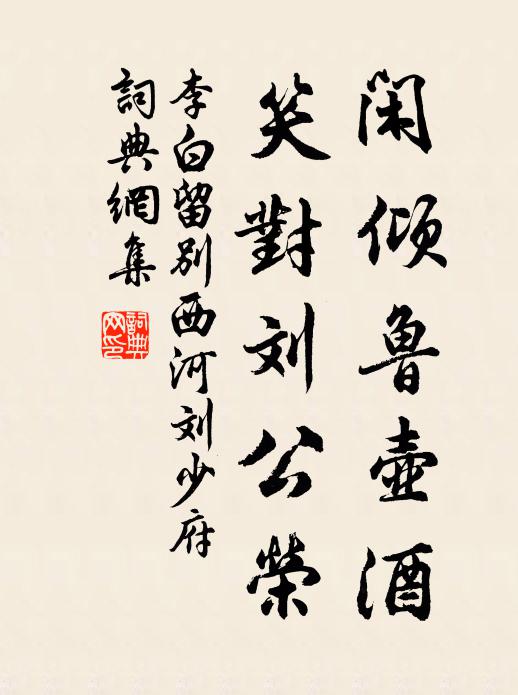 闲倾鲁壶酒
笑對刘公榮
李白留别西河刘少府
詞典網集
詞典
网印